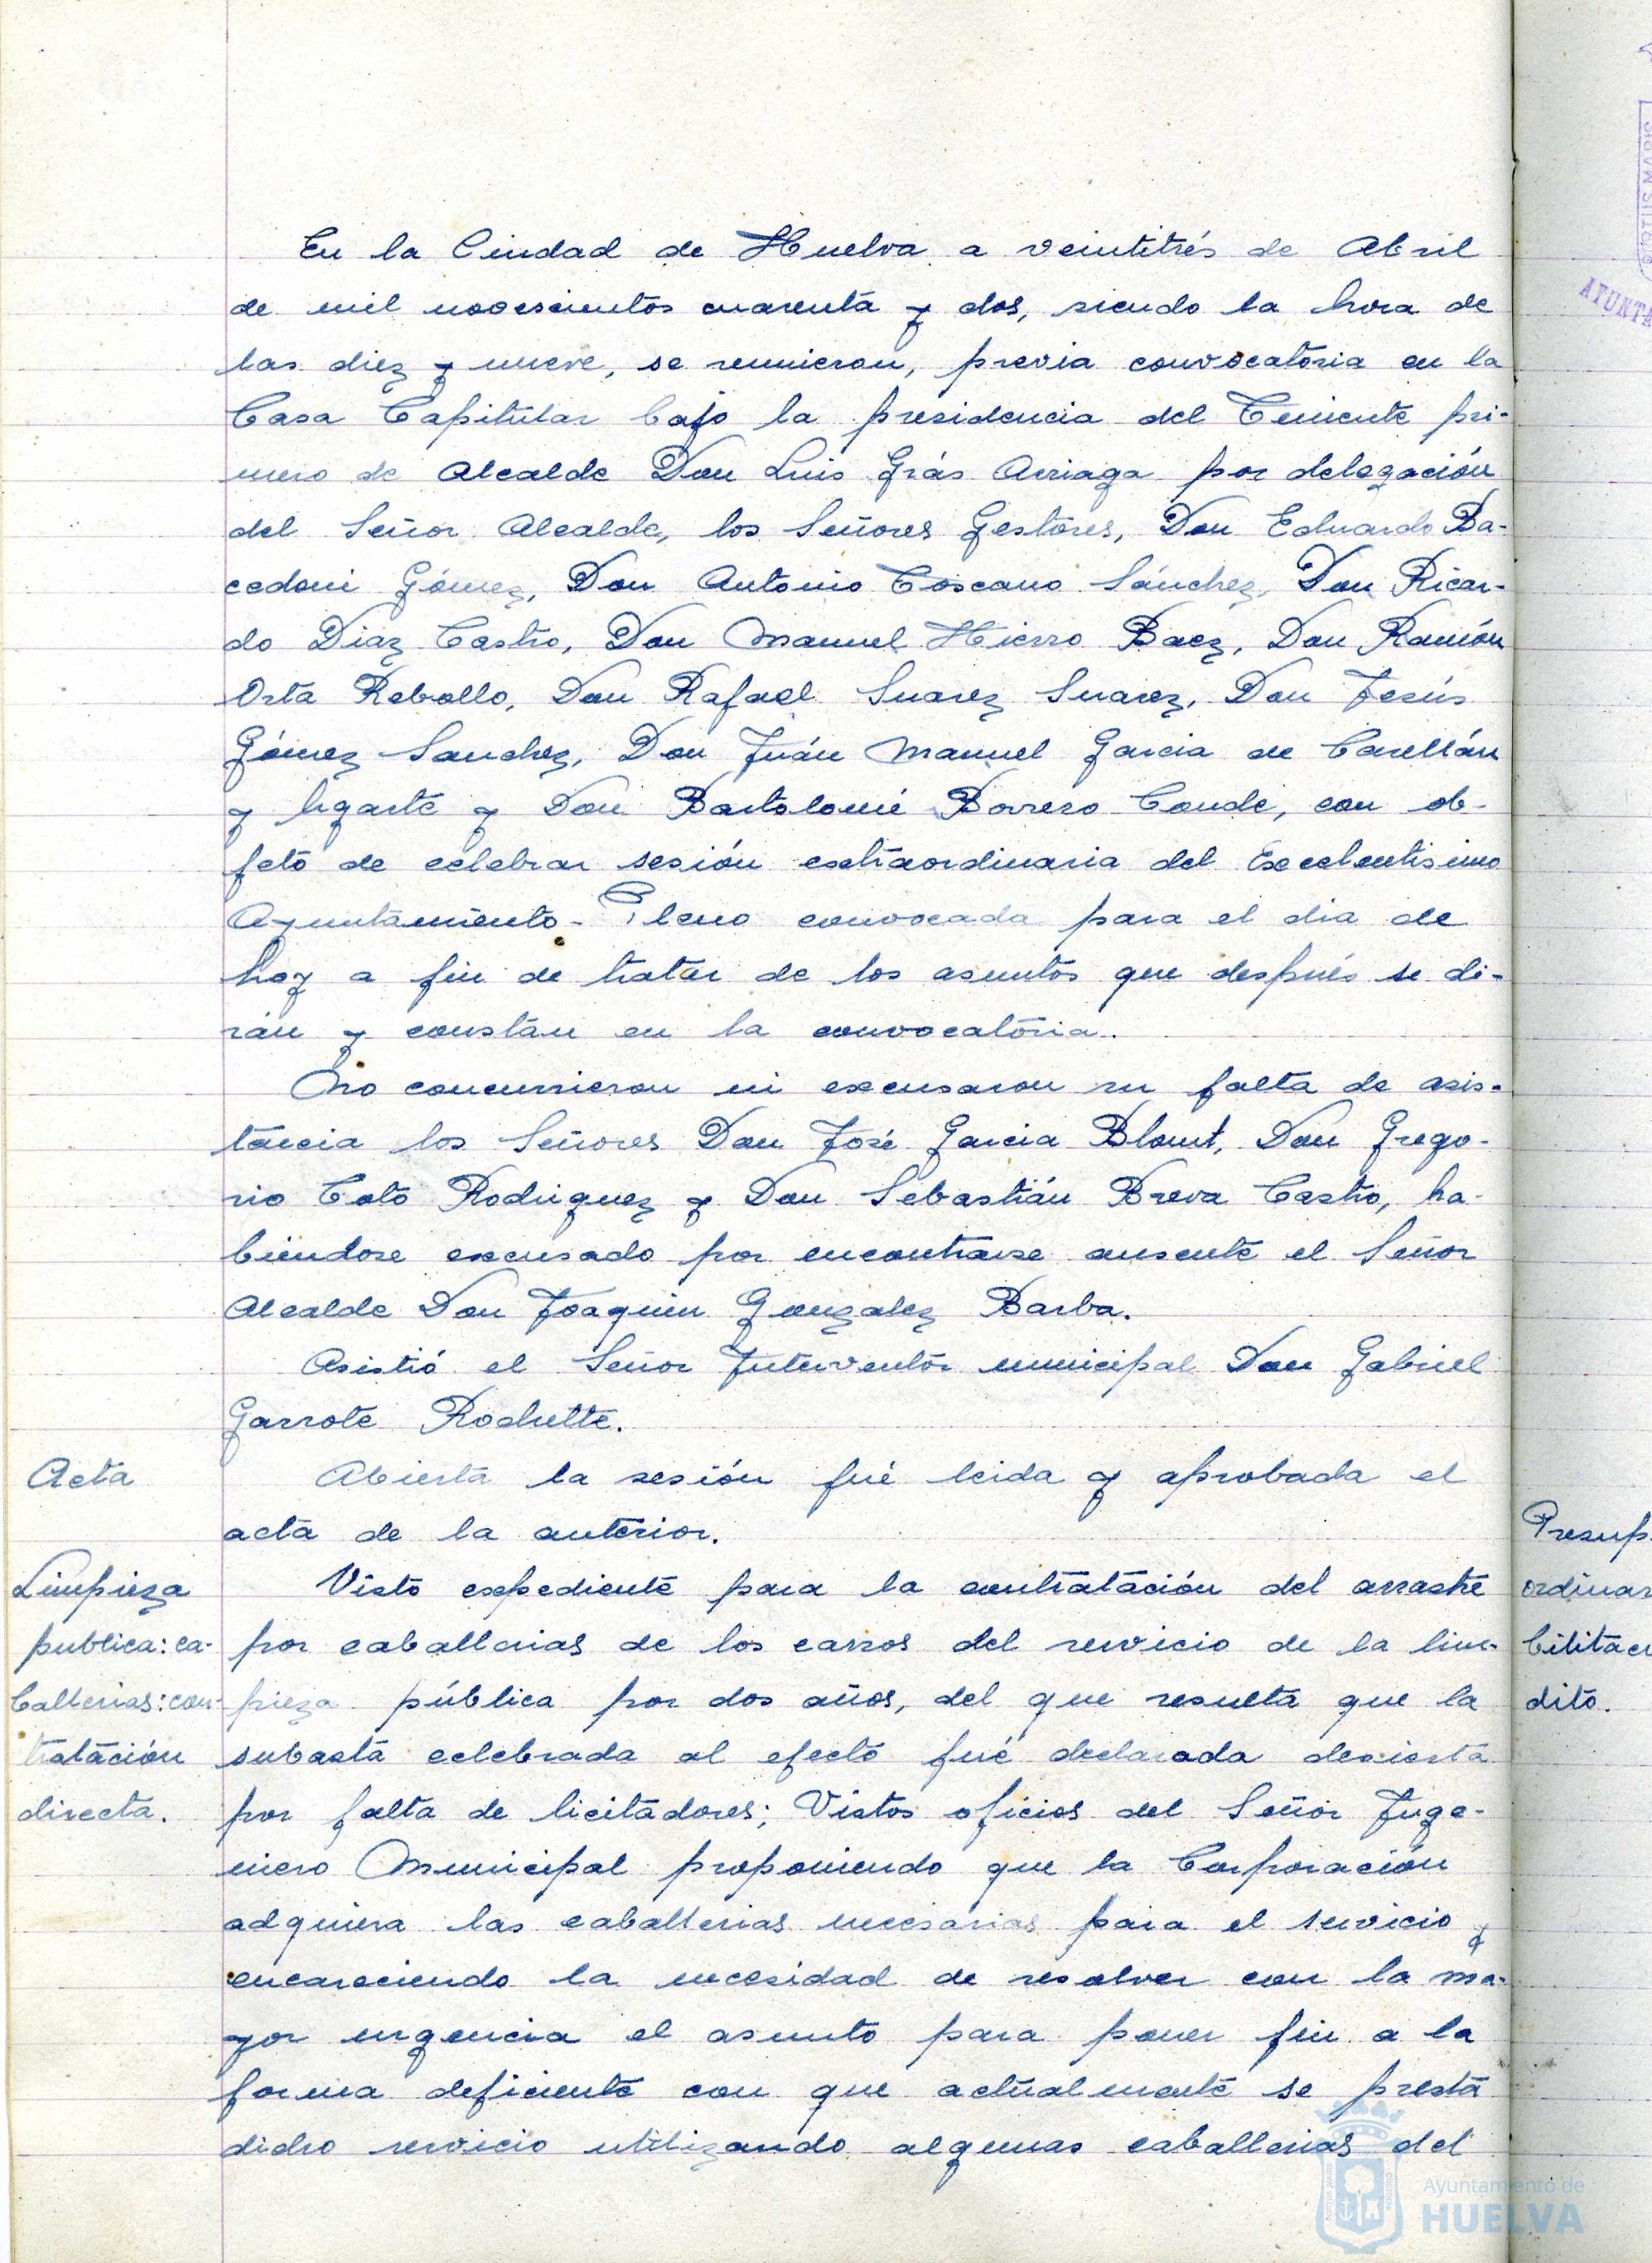 En la Ciudad de Huelva a veintitrés de Abril
de mil novescientos cuarenta y dos, siendo la hora de
las diez y nueve, se reunieron, previa convocatoria en la
Casa Capitular bajo la presidencia del Teniente pri-
mero de Alcalde Don Luis Grás Arriaga por delegación
del Señor Alcalde, los Señores Gestores, Don Eduardo Ba-
cedoni Gómez, Don Antonio Toscano Sánchez, Don Ricar-
do Diaz Castro, Don Manuel Hierro Baez, Don Ramón
Orta Rebollo, Don Rafael Suarez Suarez, Don Jesús
Gómez Sanchez, Don Juán Manuel Garcia de Carellán
y Ugarte y Don Bartolomé Borrero Conde, con ob-
jeto de celebrar sesión extraordinaria del Excelentisimo
Ayuntamiento-Pleno convocada para el dia de
hoy a fin de tratar de los asuntos que después se di-
rán y constan en la convocatoria.
No concurrieron ni excusaron su falta de asis-
tencia los Señores Don José Garcia Blount, Don Grego-
rio Coto Rodriguez y Don Sebastián Breva Castro, ha-
biendose excusado por encontrarse ausente el Señor
Alcalde Don Joaquin Gonzalez Barba.
Asistió el Señor Interventor municipal Don Gabriel
Garrote Rochette.
Acta
Abierta la sesión fué leida y aprobada el
acta de la anterior.
Limpieza
publica: ca-
ballerias: con-
tratación
directa.
Visto expediente para la contratación del arrastre
por caballerias de los carros del servicio de la lim-
pieza pública por dos años, del que resulta que la
subasta celebrada al efecto fué declarada desierta
por falta de licitadores; Vistos oficios del Señor Inge-
niero Municipal proponiendo que la Corporación
adquiera las caballerias necesarias para el servicio y
encareciendo la necesidad de resolver con la ma-
yor urgencia el asunto para poner fin a la
forma deficiente con que actualmente se presta
dicho servicio utilizando algunas caballerias del
Presup
ordinar
bilitac
dito.
PORTUS MARIS
AYUNTA
Ayuntamiento de
HUELVA